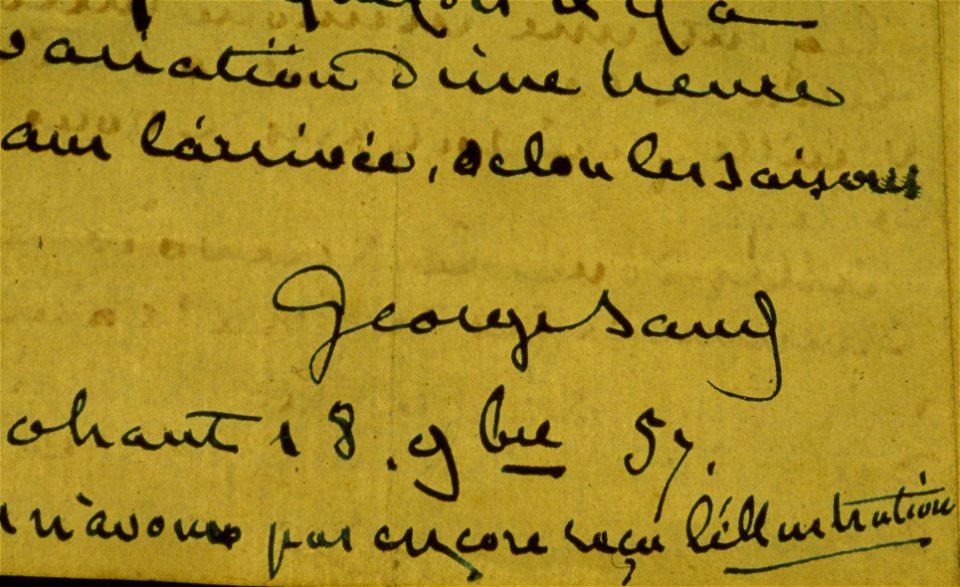 il y a
variation d'une heure
dans l'arrivée, selon les saisons
George Sand
ohant 18. 9bre 57.
n'avons pas encore reçu l'illustration